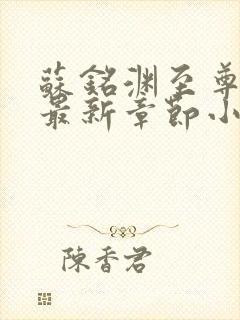 蘇銘渊至尊
最新章節小
陳香君